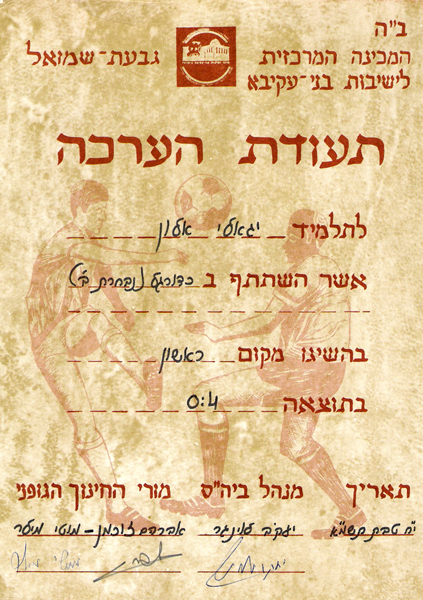 ב"ה
המכינה המרכזית גבעת-שמואל
לישיבות בני-עקיבא
תעודת הערכה
לתלמיד יגאלי אלון
אשר השתתף ב כדורגל (נבחרת ב')
בהשיגו מקום ראשון
בתוצאה 0:4
תאריך מנהל ביה"ס מורי החינוך הגופני
י"ח טבת תשמ"א יעקב עינגר אברהם זוכמן - מוטי מיטר